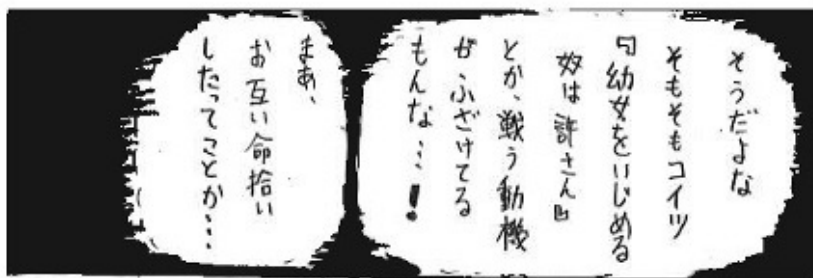 そうだよな
そもそもコイツ
『幼女をいじめる
奴は許さん』
とか、戦う動機
がふざけてる
もんな…!
まあ、
お互い命拾い
したってことか…